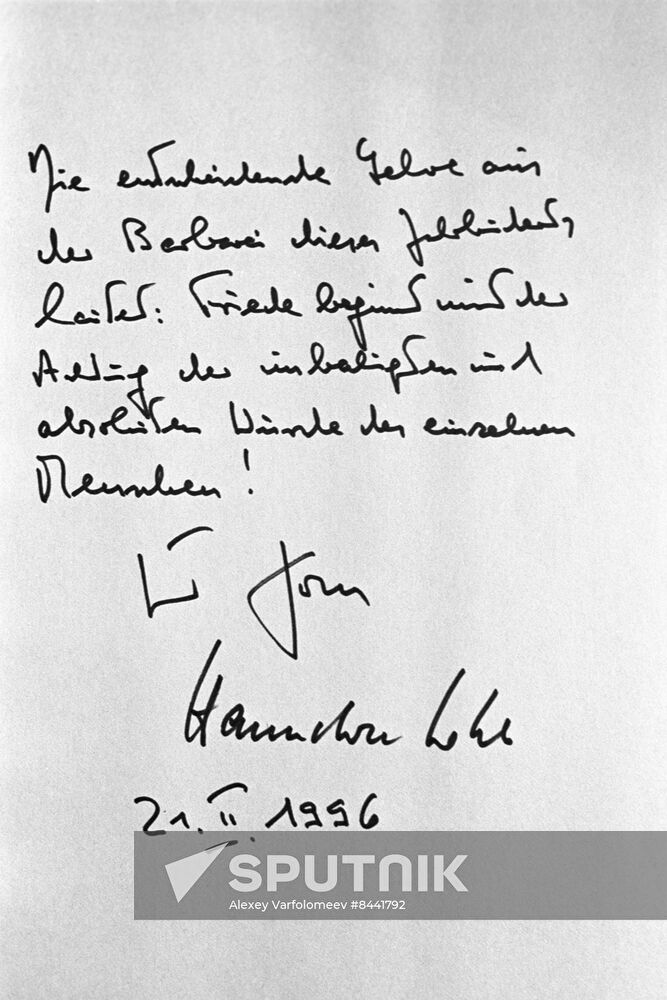 Die entscheidende Lehre aus
der Barbarei dieses Jahrhunderts
lautet: Friede beginnt mit der
Achtung der unbedingten und
absoluten Würde des einzelnen
Menschen!
Hannelore Kohl
21. II. 1996
SPUTNIK
Alexey Varfolomeev #8441792